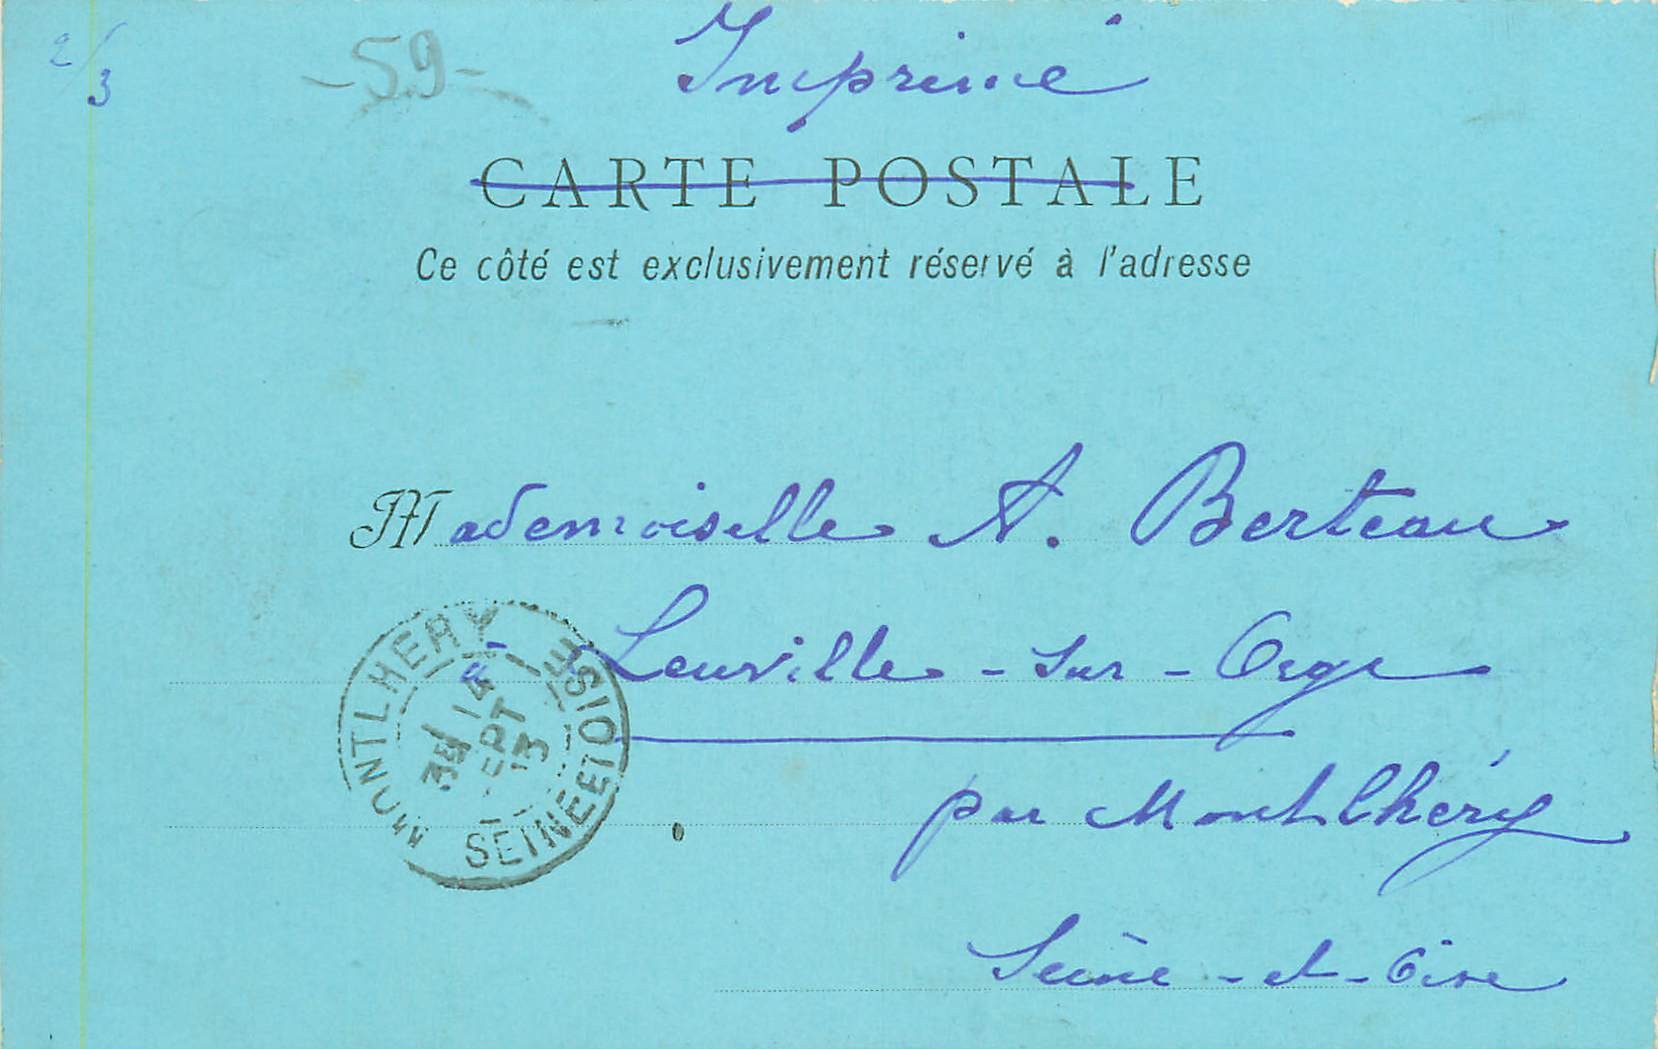 2/3
-59-
Imprimé
CARTE POSTALE
Ce côté est exclusivement réservé à l'adresse
Mademoiselle A. Berteau
à Leuville-sur-Orge
par Montlhéry
Seine-et-Oise
MONTLHERY
SEINE ET OISE
14
SEPT